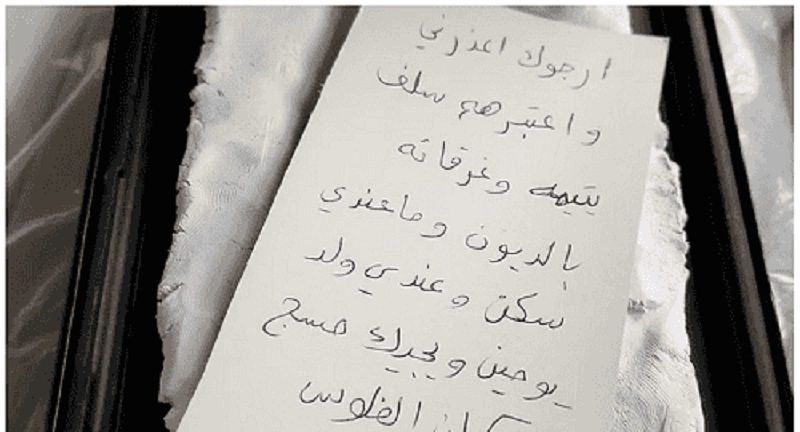 ارجوك اعذرني
واعتبرهم سلف
يتيمه وغرقانه
بالديون وماعندي
سكن وعندي ولد
يومين ويجيك مسج
الفلوس